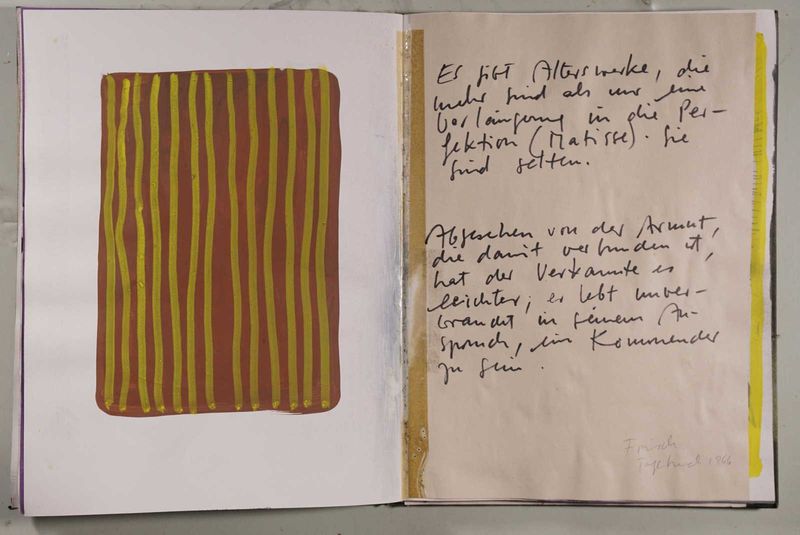 Es gibt Alterswerke, die
mehr sind als nur eine
Verlängerung in die Per-
fektion (Matisse). Sie
sind selten.
Abgesehen von der Armut,
die damit verbunden ist,
hat der Verkannte es
leichter; er lebt unver-
braucht in seinem An-
spruch, ein Kommender
zu sein.
Frisch
Tagebuch 1966